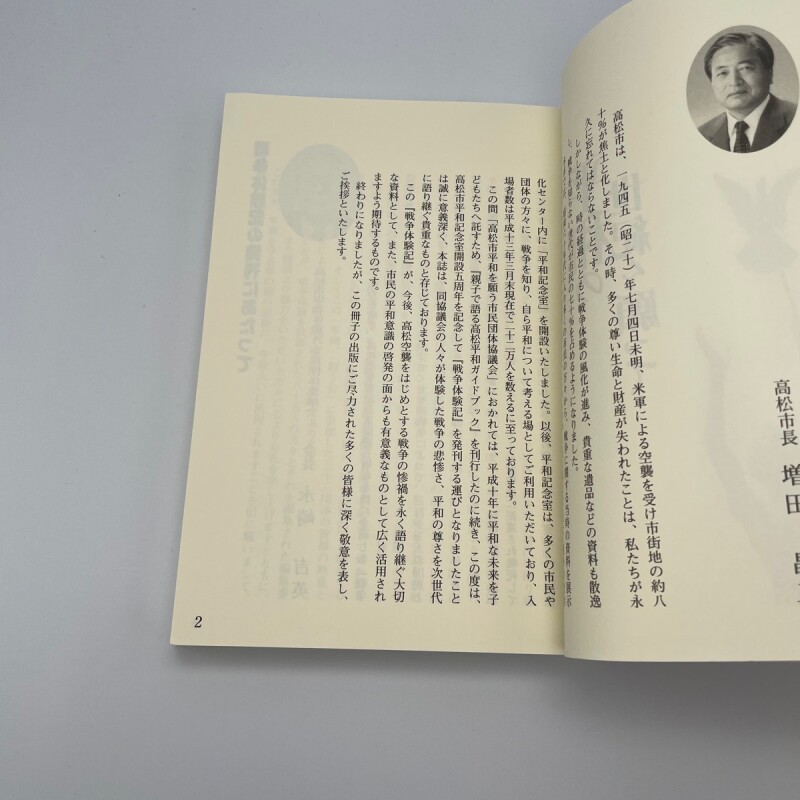 高松市長　増田　昌
高松市は、一九四五（昭二十）年七月四日未明、米軍による空襲を受け市街地の約八
十％が焦土と化しました。その時、多くの尊い生命と財産が失われたことは、私たちが永
久に忘れてはならないことです。
しかしながら、時の経過とともに戦争体験の風化が進み、貴重な遺品などの資料も散逸
し、戦争を知らない世代が市民の七十％を占めるようになりました。
戦争に関する当時の資料を展示
化センター内に「平和記念室」を開設いたしました。以後、平和記念室は、多くの市民や
団体の方々に、戦争を知り、自ら平和について考える場としてご利用いただいており、入
場者数は平成十三年三月末現在で二十二万人を数えるに至っております。
この間「高松市平和を願う市民団体協議会」におかれては、平成十年に平和な未来を子
どもたちへ託すため、『親子で語る高松平和ガイドブック』を刊行したのに続き、この度は、
高松市平和記念室開設五周年を記念して『戦争体験記』を発刊する運びとなりましたこと
は誠に意義深く、本誌は、同協議会の人々が体験した戦争の悲惨さ、平和の尊さを次世代
に語り継ぐ貴重なものと存じております。
この『戦争体験記』が、今後、高松空襲をはじめとする戦争の惨禍を永く語り継ぐ大切
な資料として、また、市民の平和意識の啓発の面からも有意義なものとして広く活用され
ますよう期待するものです。
終わりになりましたが、この冊子の出版にご尽力された多くの皆様に深く敬意を表し、
ご挨拶といたします。
2